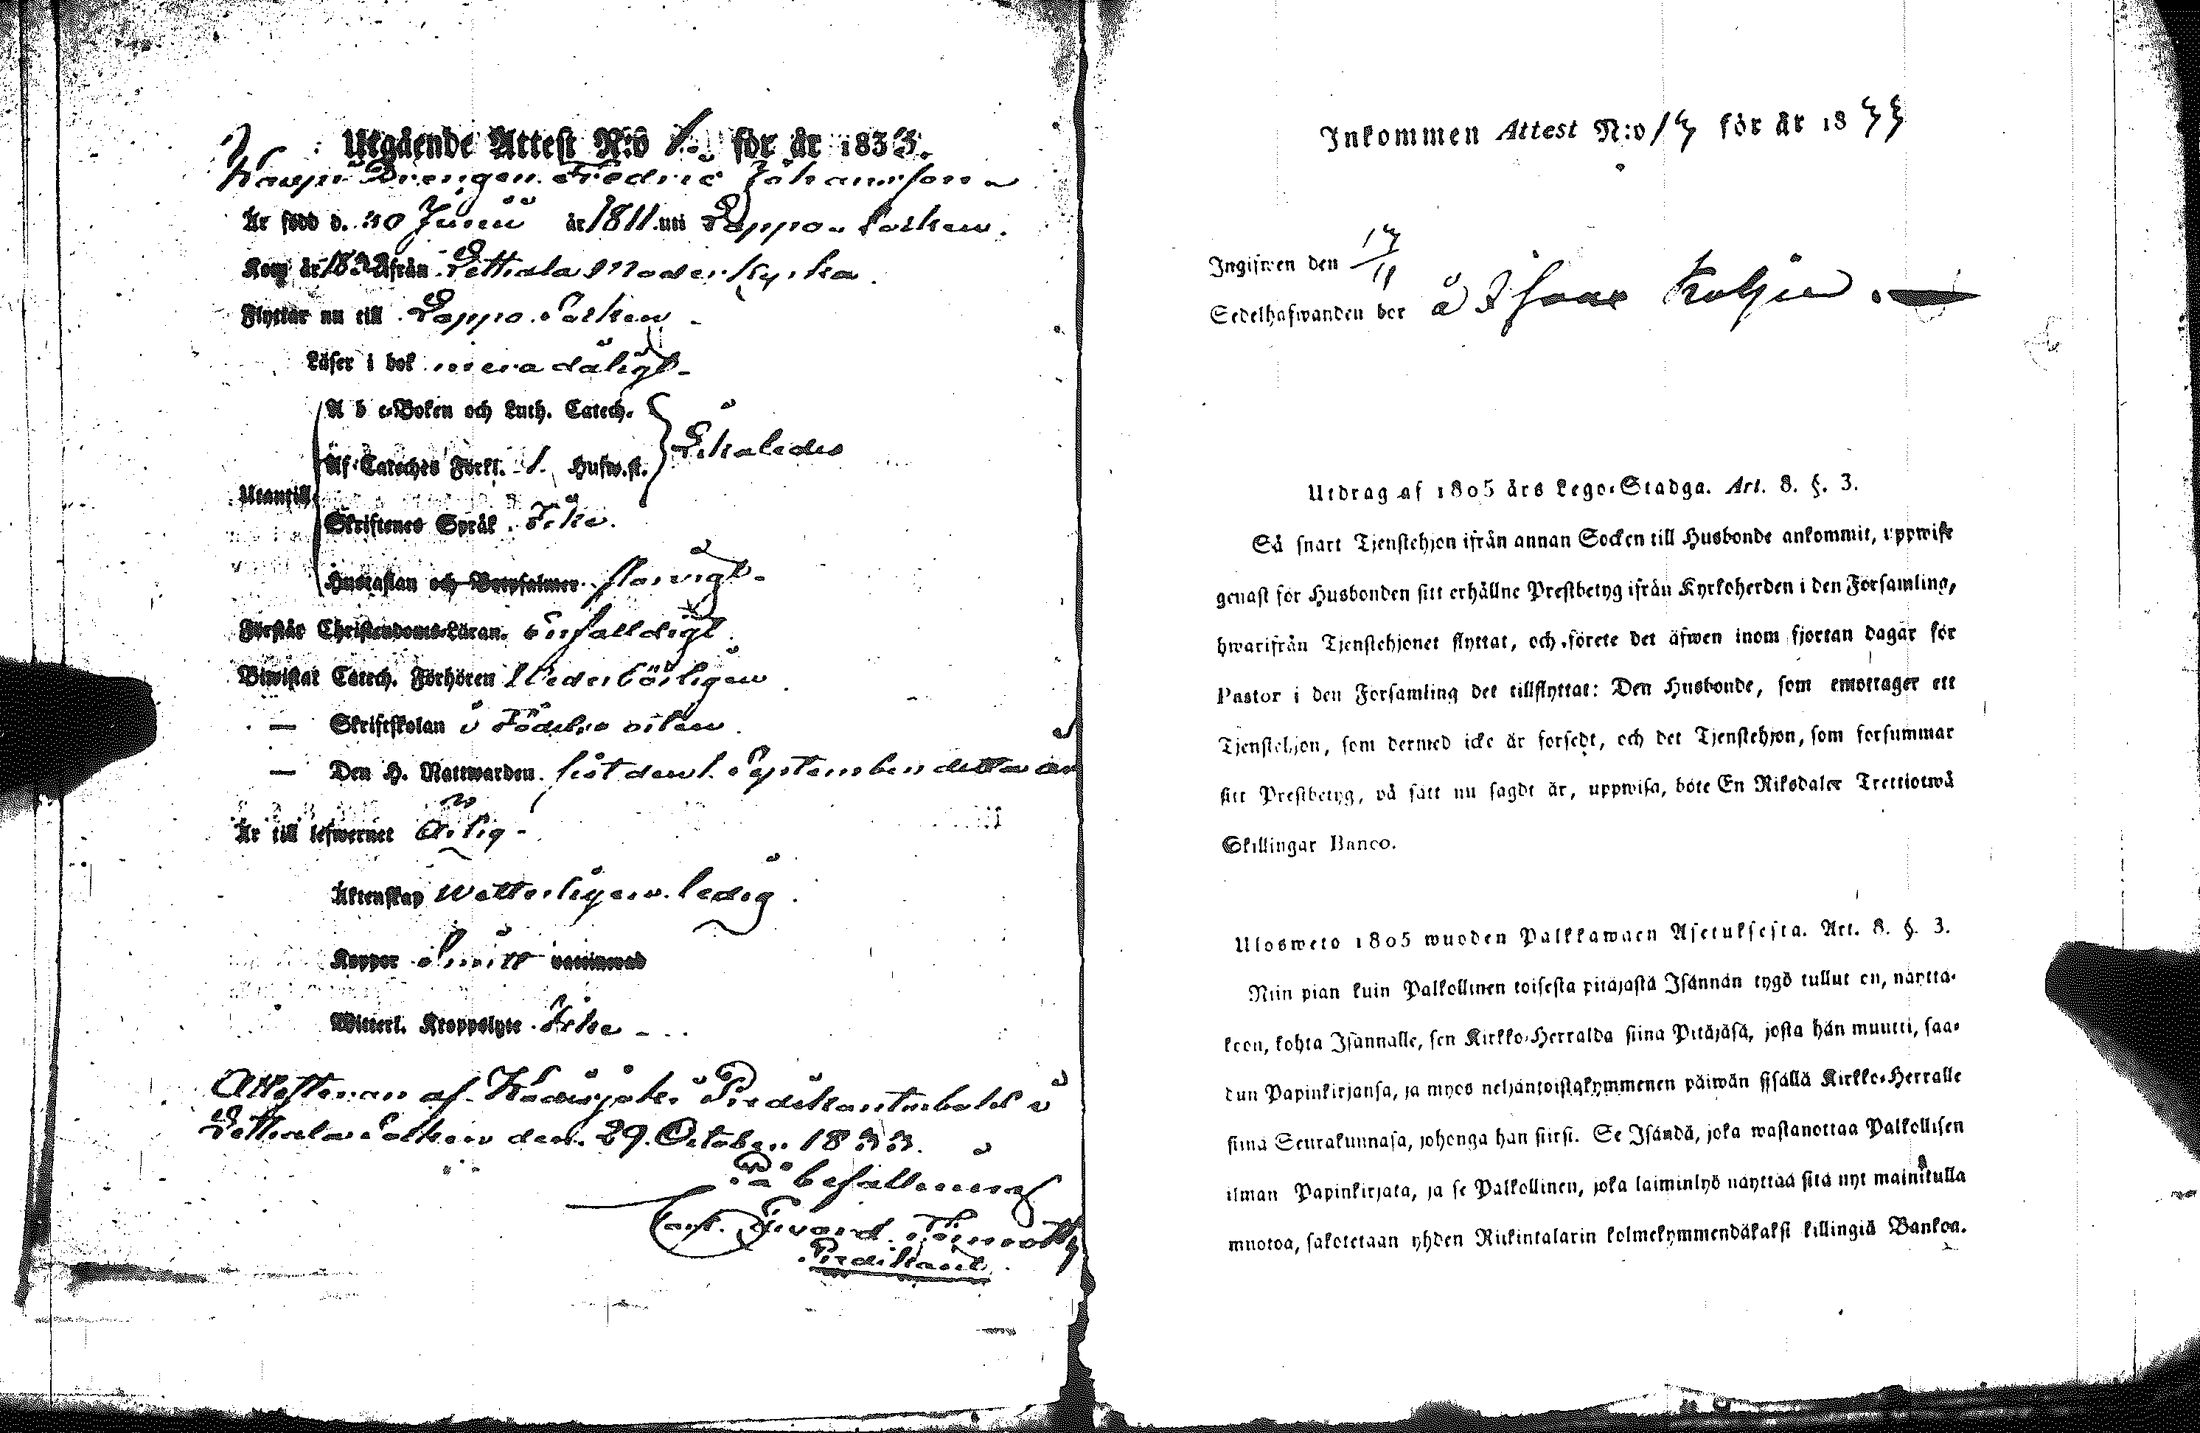 Utgående Attest N:o 1. för år 1833.
Drengen Fredric Johansson
Är född d. 30 Junii år 1811 uti Lappo Socken.
Kom år 1832 ifrån Lettala Moderkyrka.
Flyttar nu till Lappo Socken
Läser i bok mera dåligt
A b c-Boken och Luth. Catech.
Likaledes
Af Cateches Förkl. 1. Husw.st.
Utantill
Skriftenes Språk Icke.
Hustaflan och Botpsalmer
Förstår Christendoms-Läran. Enfalldigt
Biwistat Catech. Förhören Wederbörligen
— Skriftskolan i Födelse orten.
— Den H. Nattwarden sist den 1. September detta år
Är till lefwernet Ärlig
Äktenskap Wetterligen ledig.
Koppor vaccinerad
Witterl. Kroppslyte Icke
Attesteran af Predikantsbohl i
Socken den 29. October 1833.
På befallning
Predikant.
Inkommen Attest N:o 17 för år 1833
Ingifwen den 17/11
Sedelhafwanden bor å
Utdrag af 1805 års Lego-Stadga. Art. 8. §. 3.
Så snart Tjenstehjon ifrån annan Socken till Husbonde ankommit, uppwise
genast för Husbonden sitt erhållne Prestbetyg ifrån Kyrkoherden i den Församling,
hwarifrån Tjenstehjonet flyttat, och förete det äfwen inom fjortan dagar för
Pastor i den Församling det tillflyttat: Den Husbonde, som emottager ett
Tjenstehjon, som dermed icke är försedt, och det Tjenstehjon, som försummar
sitt Prestbetyg, på sätt nu sagdt är, uppwisa, böte En Riksdaler Trettiotwå
Skillingar Banco.
Ulosweto 1805 wuoden Palkkawaen Asetuksesta. Art. 8. §. 3.
Niin pian kuin Palkollinen toisesta pitäjästä Isännän tygö tullut on, näyttä-
köön, kohta Isännälle, sen Kirkko-Herralda siinä Pitäjäsä, josta hän muutti, saa-
dun Papinkirjansa, ja myös neljäntoistakymmenen päiwän sisällä Kirkko-Herralle
siinä Seurakunnasa, johonga hän siirsi. Se Isändä, joka wastanottaa Palkollisen
ilman Papinkirjata, ja se Palkollinen, joka laiminlyö näyttää sitä nyt mainitulla
muotoa, sakotetaan yhden Riikintalarin kolmekymmendäkaksi killingiä Bankoa.